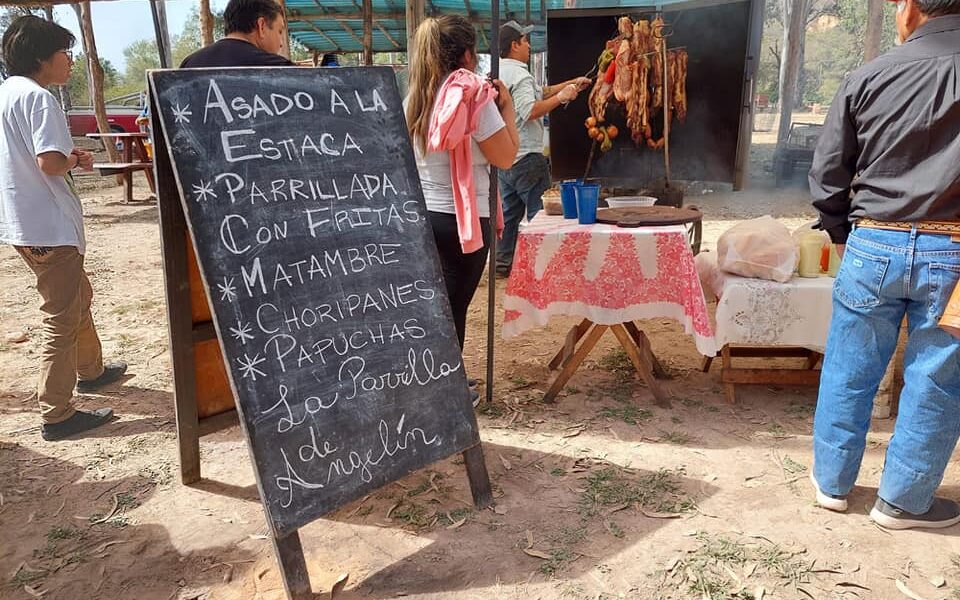 * ASADO A LA
ESTACA
* PARRILLADA
CON FRITAS
* MATAMBRE
* CHORIPANES
* PAPUCHAS
La Parrilla
de
Angelín